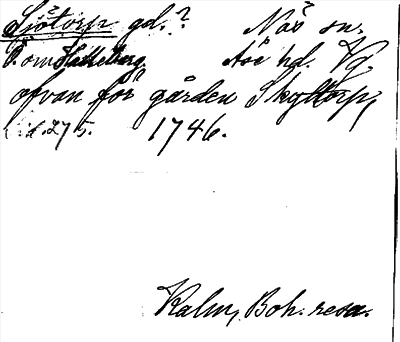 Sjötorp gd.? Näs sn.
Ö. om Halleberg. Åse hd. Vg.
ofvan för gården Skyttorp,
sid. 275. 1746.
Kalm, Boh. resa.